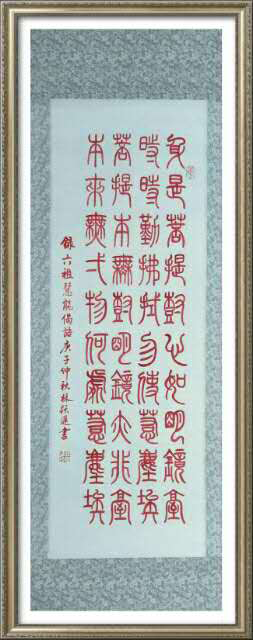 身是菩提樹心如明鏡臺
時時勤拂拭勿使惹塵埃
菩提本無樹明鏡亦非臺
本來無弌物何處惹塵埃
錄六祖慧能偈語庚子仲秋林書